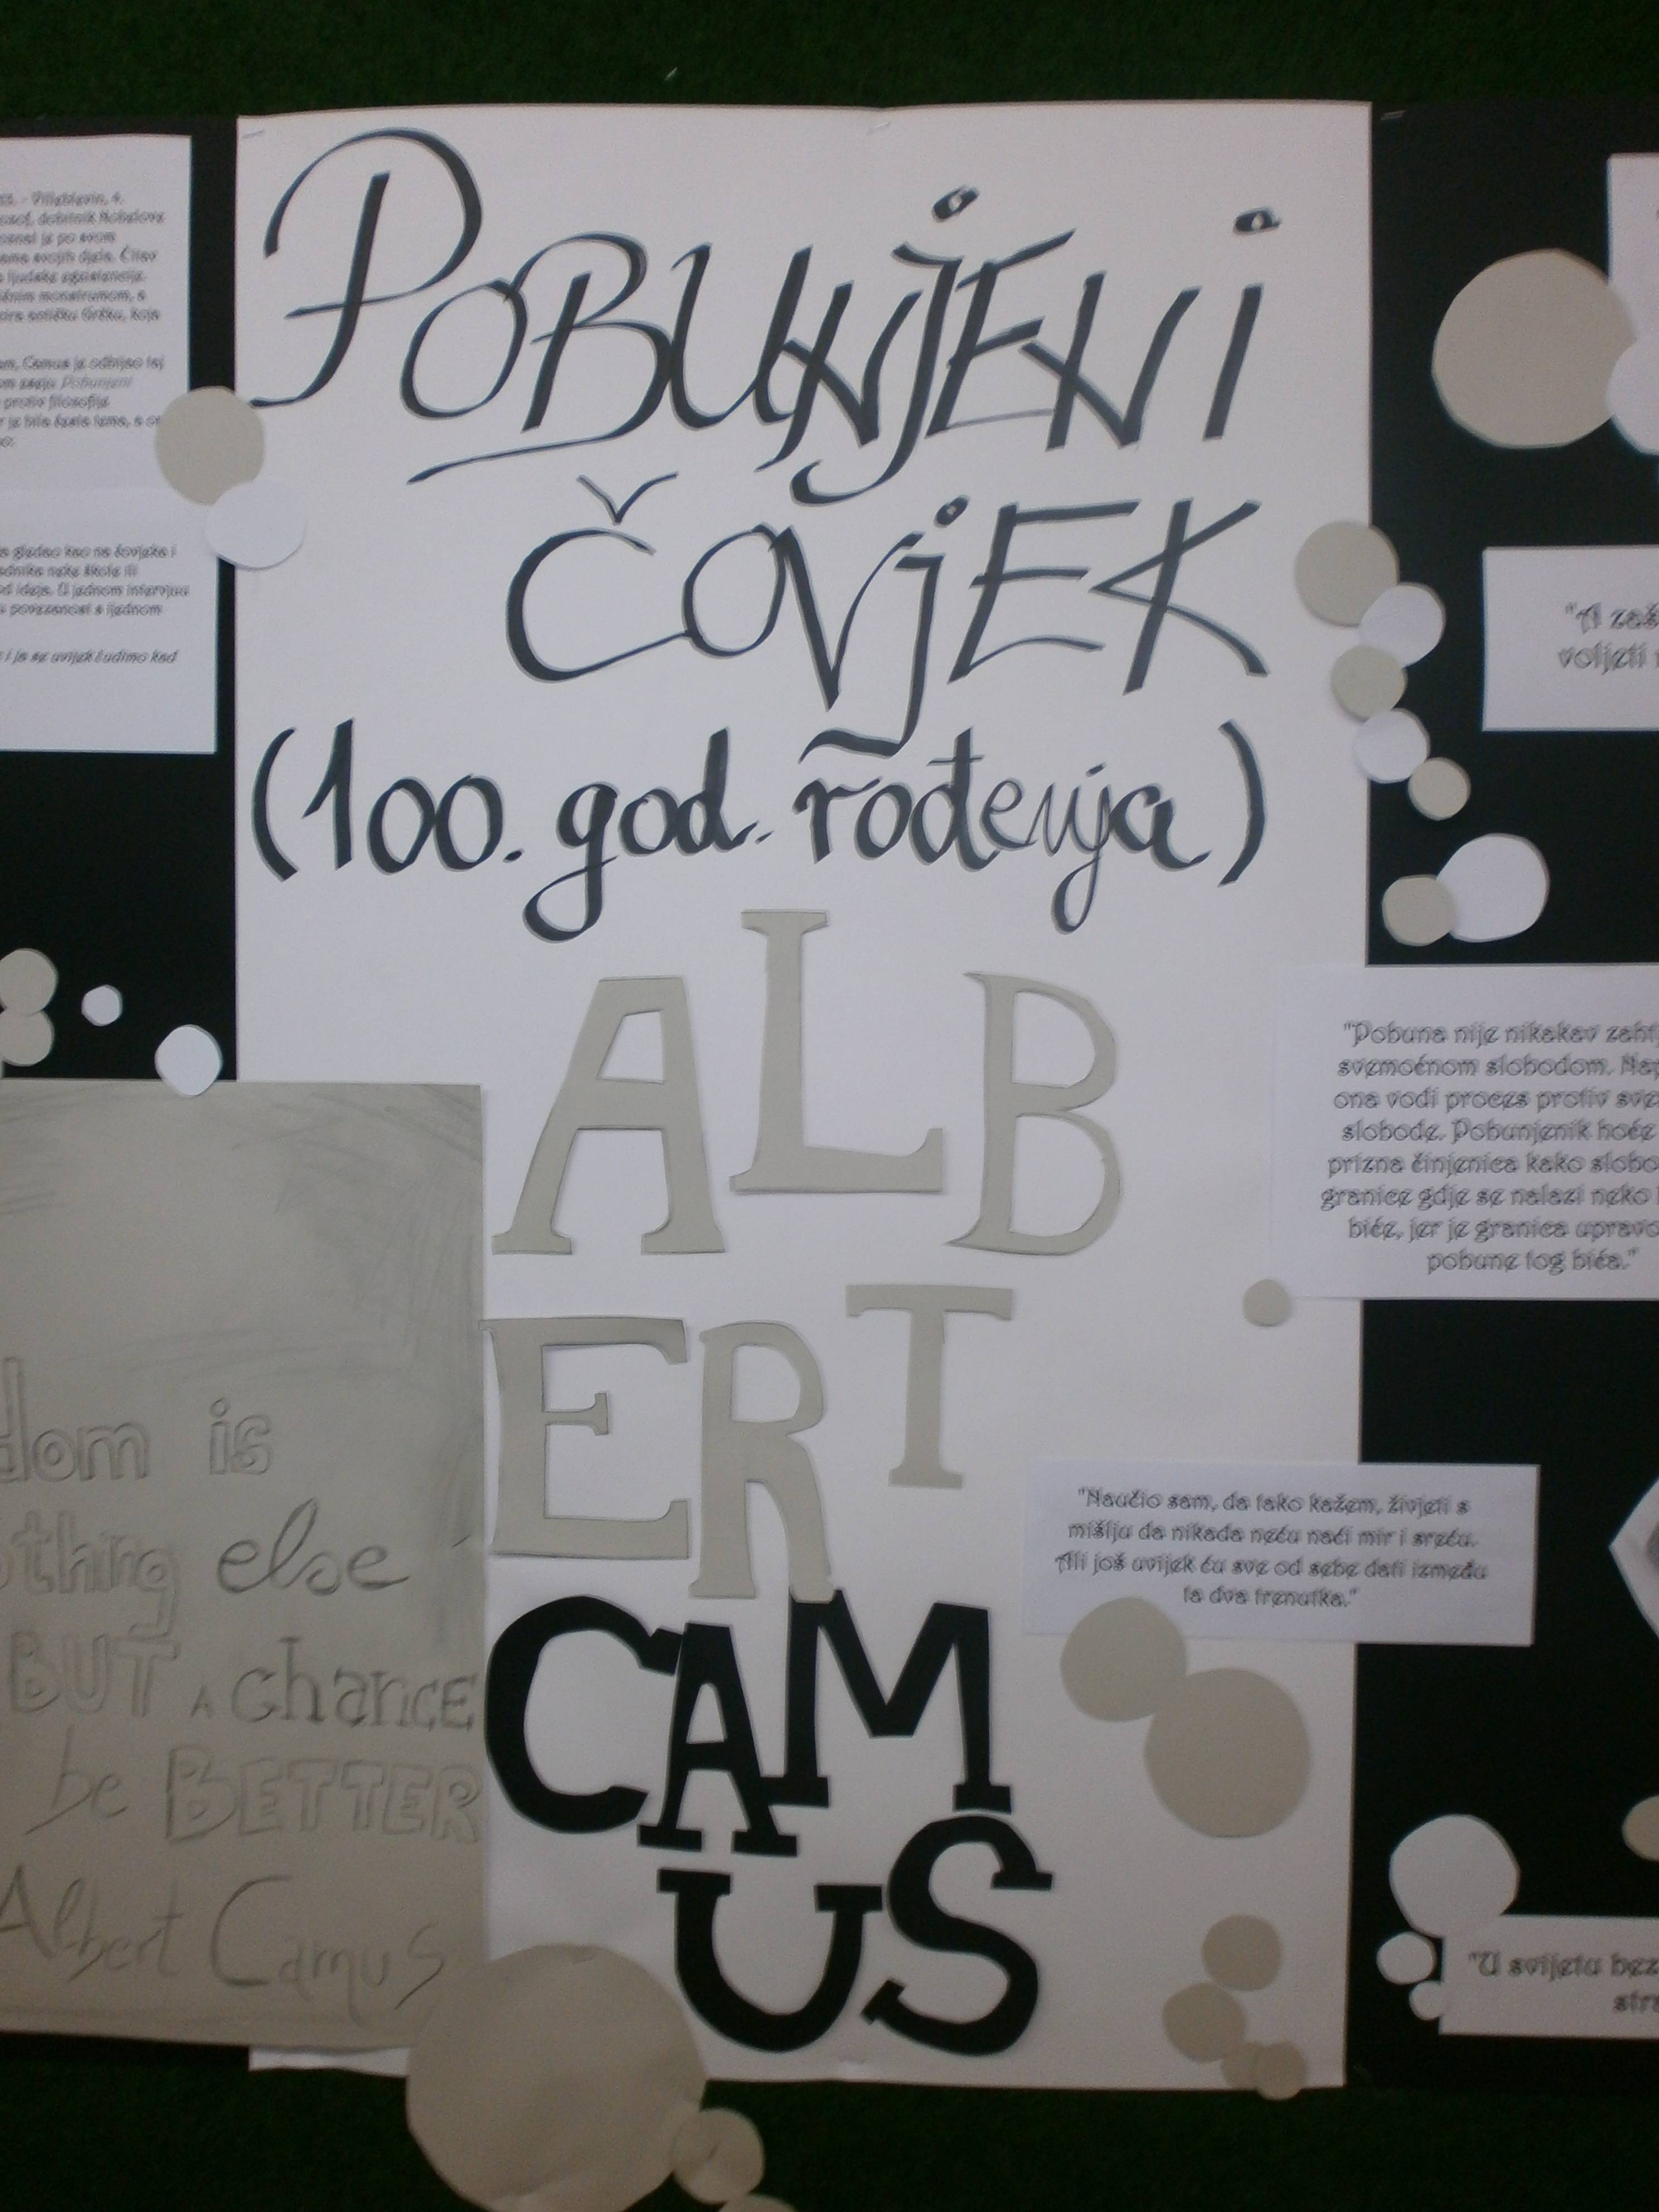 POBUNJENI
ČOVJEK
(100. god. rođenja)
ALB
ERT
CAM
US
- Villeblevin, 4.
dobitnik Nobelove
je po svom
svojih djela. Čitav
ljudske egzistencije.
monstrumom, a
antičku Grčku, koja
Camus je odbijao taj
Pobunjeni
protiv filozofije
je bila česta tema, a
gledao kao na čovjeka i
neke škole ili
od ideja. U jednom intervjuu
povezanost s ijednom
i ja se uvijek čudimo kad
dom is
thing else
BUT A chance
be BETTER
Albert Camus
"A zaš
voljeti
"Pobuna nije nikakav zaht
svemoćnom slobodom. Nap
ona vodi proces protiv sve
slobode. Pobunjenik hoće
prizna činjenica kako slobo
granice gdje se nalazi neko
biće, jer je granica upravo
pobune tog bića."
"Naučio sam, da tako kažem, živjeti s
mišlju da nikada neću naći mir i sreću.
Ali još uvijek ću sve od sebe dati između
ta dva trenutka."
"U svijetu bez
stra